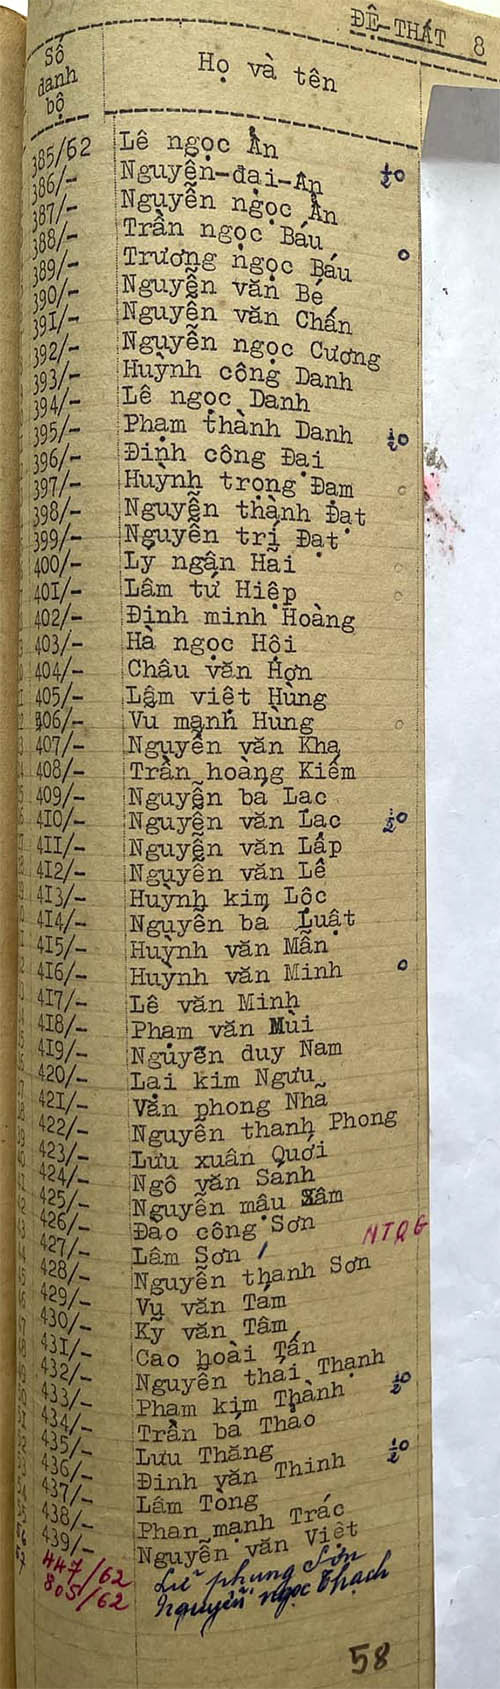 ĐỆ-THẤT 8
Số danh bộ Họ và tên
385/62 Lê ngọc Ẩn
386/- Nguyễn-đại-Ân ½0
387/- Nguyễn ngọc Ẩn
388/- Trần ngọc Báu
389/- Trương ngọc Báu 0
390/- Nguyễn văn Bé
391/- Nguyễn văn Chấn
392/- Nguyễn ngọc Cương
393/- Huỳnh công Danh
394/- Lê ngọc Danh
395/- Phạm thành Danh ½0
396/- Đinh công Đại
397/- Huỳnh trọng Đạm 0
398/- Nguyễn thành Đạt
399/- Nguyễn trí Đạt
400/- Lý ngân Hải 0
401/- Lâm tứ Hiệp 0
402/- Định minh Hoàng
403/- Hà ngọc Hội
404/- Châu văn Hơn
405/- Lâm việt Hùng
406/- Vu mạnh Hùng 0
407/- Nguyễn văn Kha
408/- Trần hoàng Kiếm
409/- Nguyễn bá Lạc
410/- Nguyễn văn Lạc ½0
411/- Nguyễn văn Lắp
412/- Nguyễn văn Lê
413/- Huỳnh kim Lộc
414/- Nguyễn bá Luật
415/- Huỳnh văn Mẫn
416/- Huỳnh văn Minh 0
417/- Lê văn Minh
418/- Phạm văn Mùi
419/- Nguyễn duy Nam
420/- Lại kim Ngưu
421/- Văn phong Nhã
422/- Nguyễn thanh Phong
423/- Lưu xuân Quới
424/- Ngô văn Sánh
425/- Nguyễn mâu Sâm
426/- Đào công Sơn
427/- Lâm Sơn NTQG
428/- Nguyễn thanh Sơn
429/- Vũ văn Tám
430/- Kỹ văn Tâm
431/- Cao hoài Tấn
432/- Nguyễn thái Thạnh
433/- Phạm kim Thành ½0
434/- Trần bá Thảo
435/- Lưu Thăng
436/- Đinh văn Thinh ½0
437/- Lâm Tòng
438/- Phan mạnh Trác
439/- Nguyễn văn Việt
447/62 Lữ phụng Sơn
805/62 Nguyễn ngọc Thạch
58